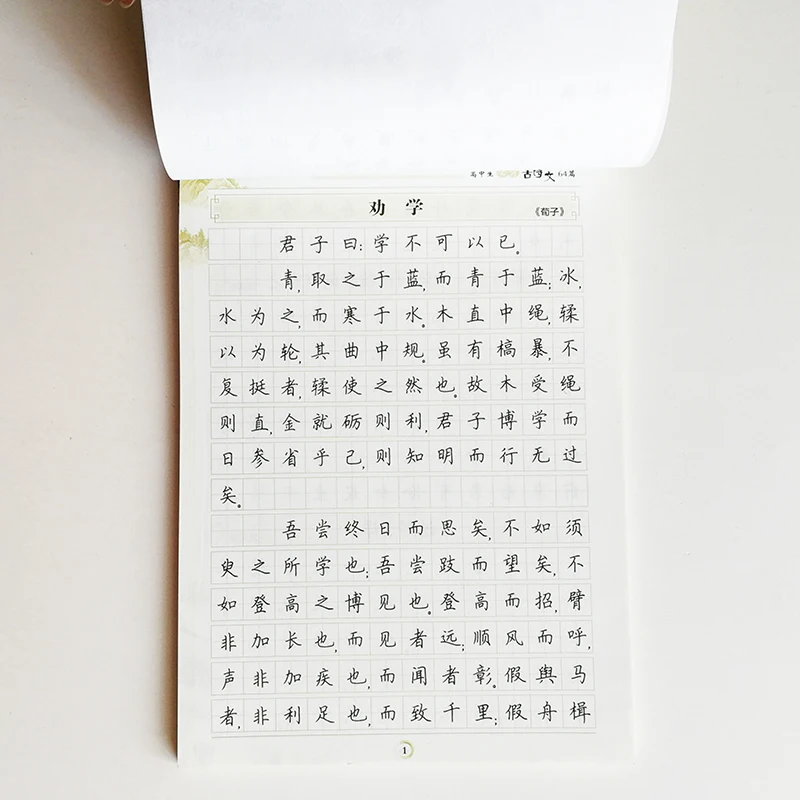 高中生 古诗文 64篇
劝学
《荀子》
君子曰:学不可以已。
青,取之于蓝,而青于蓝;冰,
水为之,而寒于水。木直中绳,𫐓
以为轮,其曲中规。虽有槁暴,不
复挺者,𫐓使之然也。故木受绳
则直,金就砺则利,君子博学而
日参省乎己,则知明而行无过
矣。
吾尝终日而思矣,不如须
臾之所学也;吾尝跂而望矣,不
如登高之博见也。登高而招,臂
非加长也,而见者远;顺风而呼,
声非加疾也,而闻者彰。假舆马
者,非利足也,而致千里;假舟楫
1